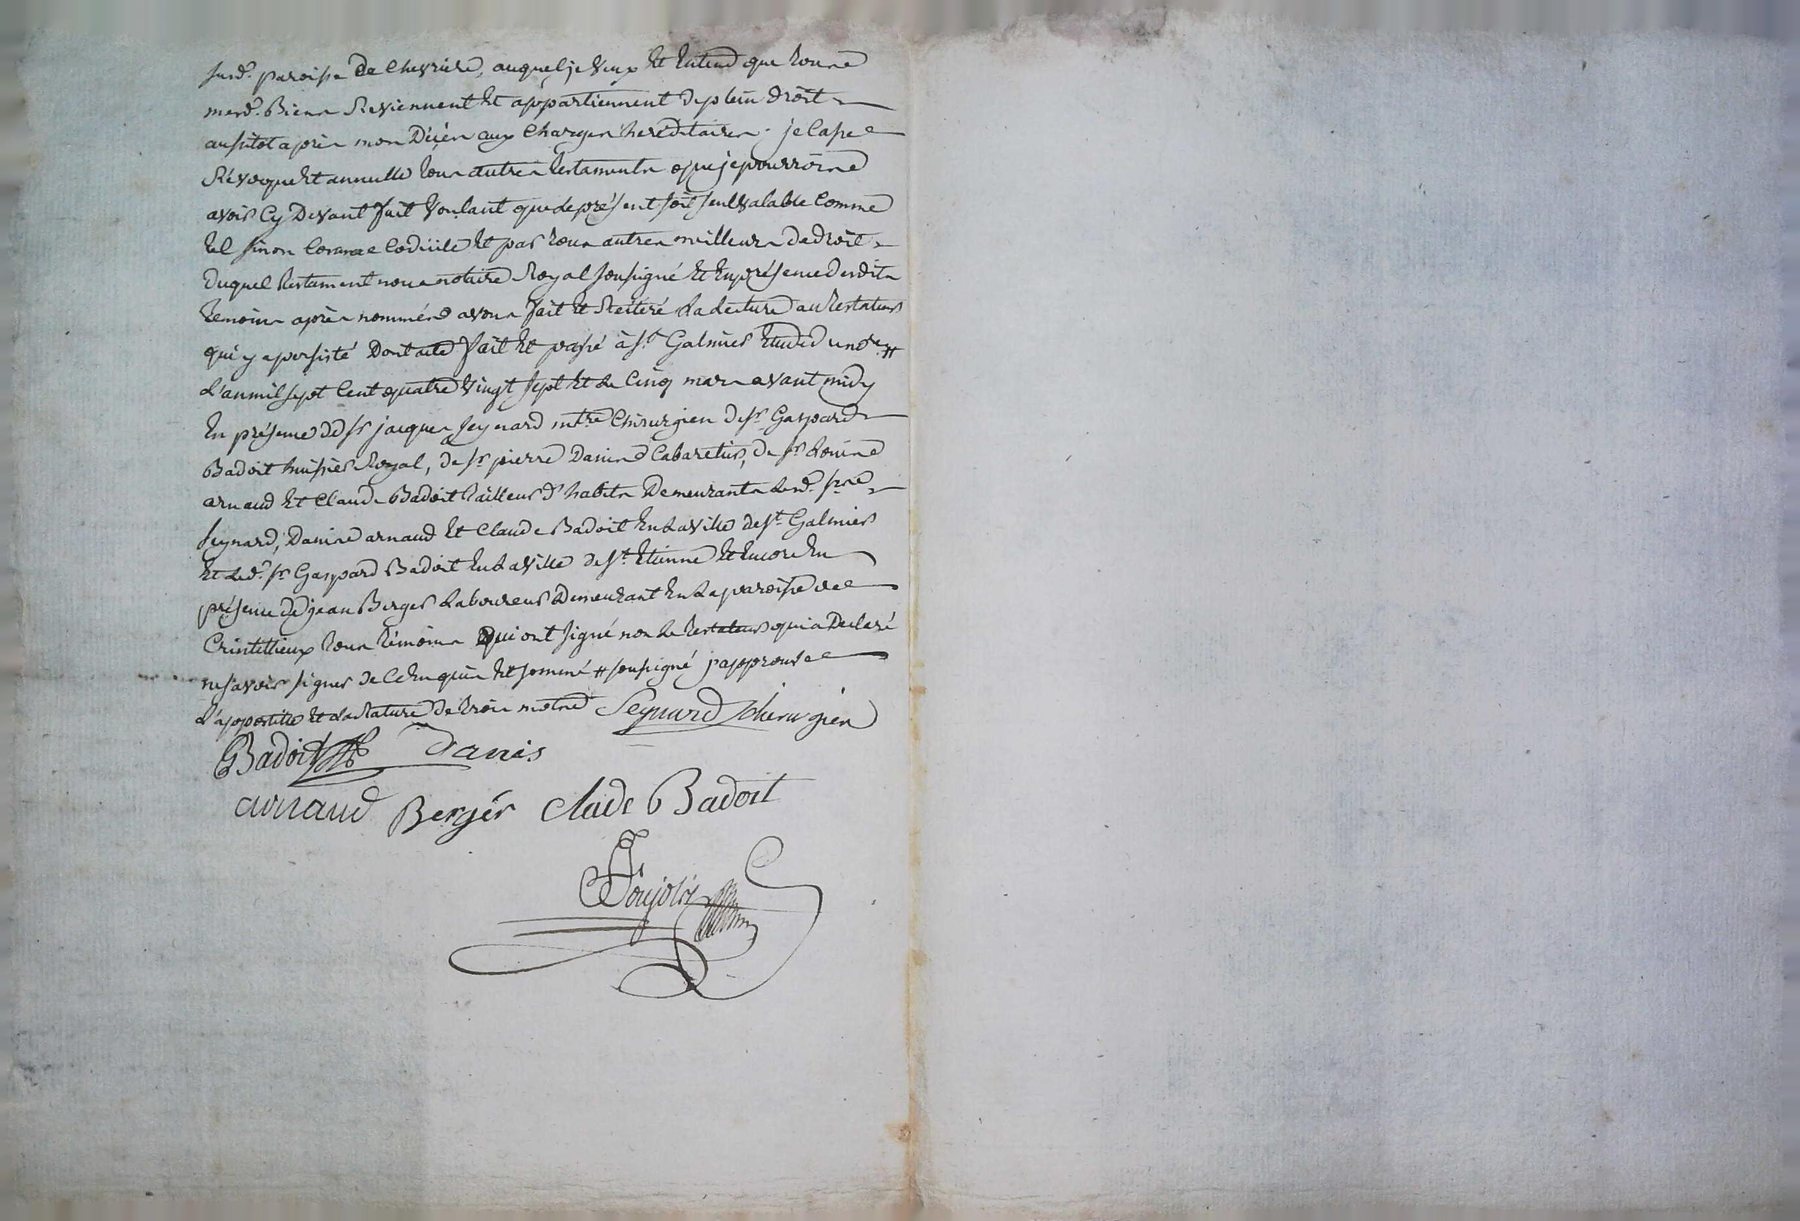 susd. paroisse de Chevriere, auquel je veux et entend que tous
mesd. Biens Reviennent et appartiennent de plein droit
ausitot après mon Décès aux Charges héréditaires. je Casse
Révoque et annulle tous autres testaments que je pourrois
avoir Cy Devant fait voulant que le présent soit seul valable Comme
tel sinon Comme Codicile et par tous autres meilleurs de droit
Duquel testament nous notaire Royal sousigné et En présence desdits
temoins après nommés avons fait et Réiteré la lecture au testateur
qui y a persisté Dont acte fait et passé à St. Galmier Etude d #
l'an mil sept Cent quatre vingt sept et le Cinq mars avant midy
En présence de Sr jacques Seynard mtre Chirurgien de Sr. Gaspard
Badoit huissier Royal, de Sr pierre Danis Cabaretier, de Sr Louis
arnaud et Claude Badoit tailleur d'habits Demeurants lesd. Srs
Seynard, Danis arnaud et Claude Badoit En la ville de St. Galmier
et led. Sr Gaspard Badoit En la ville de St. Etienne et Encore En
présence de jean Berger Laboureur Demeurant En la paroisse de
Crintillieux tous témoins Qui ont signé non le testateur qui a Declaré
ne savoir signer de ce Enquis et sommé # sousigné j'approuve
l'apostille et la rature de trois mots Seynard Chirurgien
Badoit danis
arnaud Berger Clade Badoit